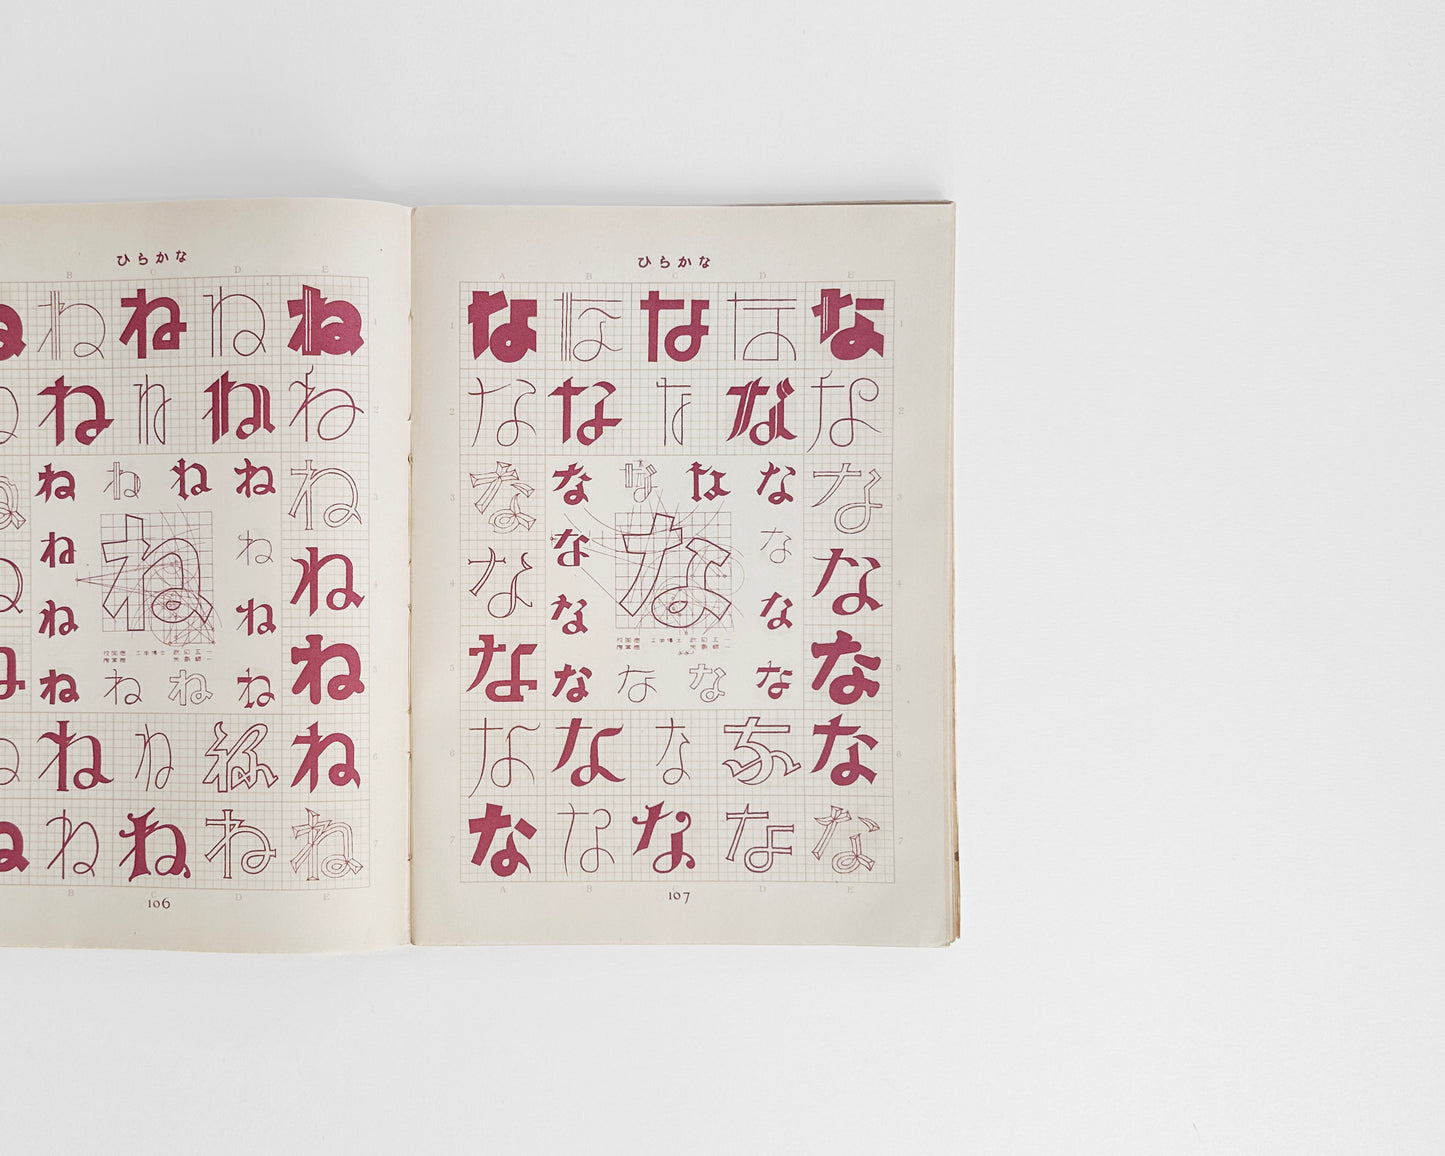 ひらかな
B C D E
ね ね ね ね 1
ね ね ね ね 2
ね ね ね ね ね 3
ね ね ね
ね ね 4
ね ね
ね ね ね ね ね 5
ね ね ね ね 6
ね ね ね ね 7
B C D E
106
ひらかな
A B C D E
1 な な な な な 1
2 な な な な な 2
3 な な な な な な 3
な な な
4 な な な な 4
5 な な な な な な 5
6 な な な な な 6
7 な な な な な 7
A B C D E
107